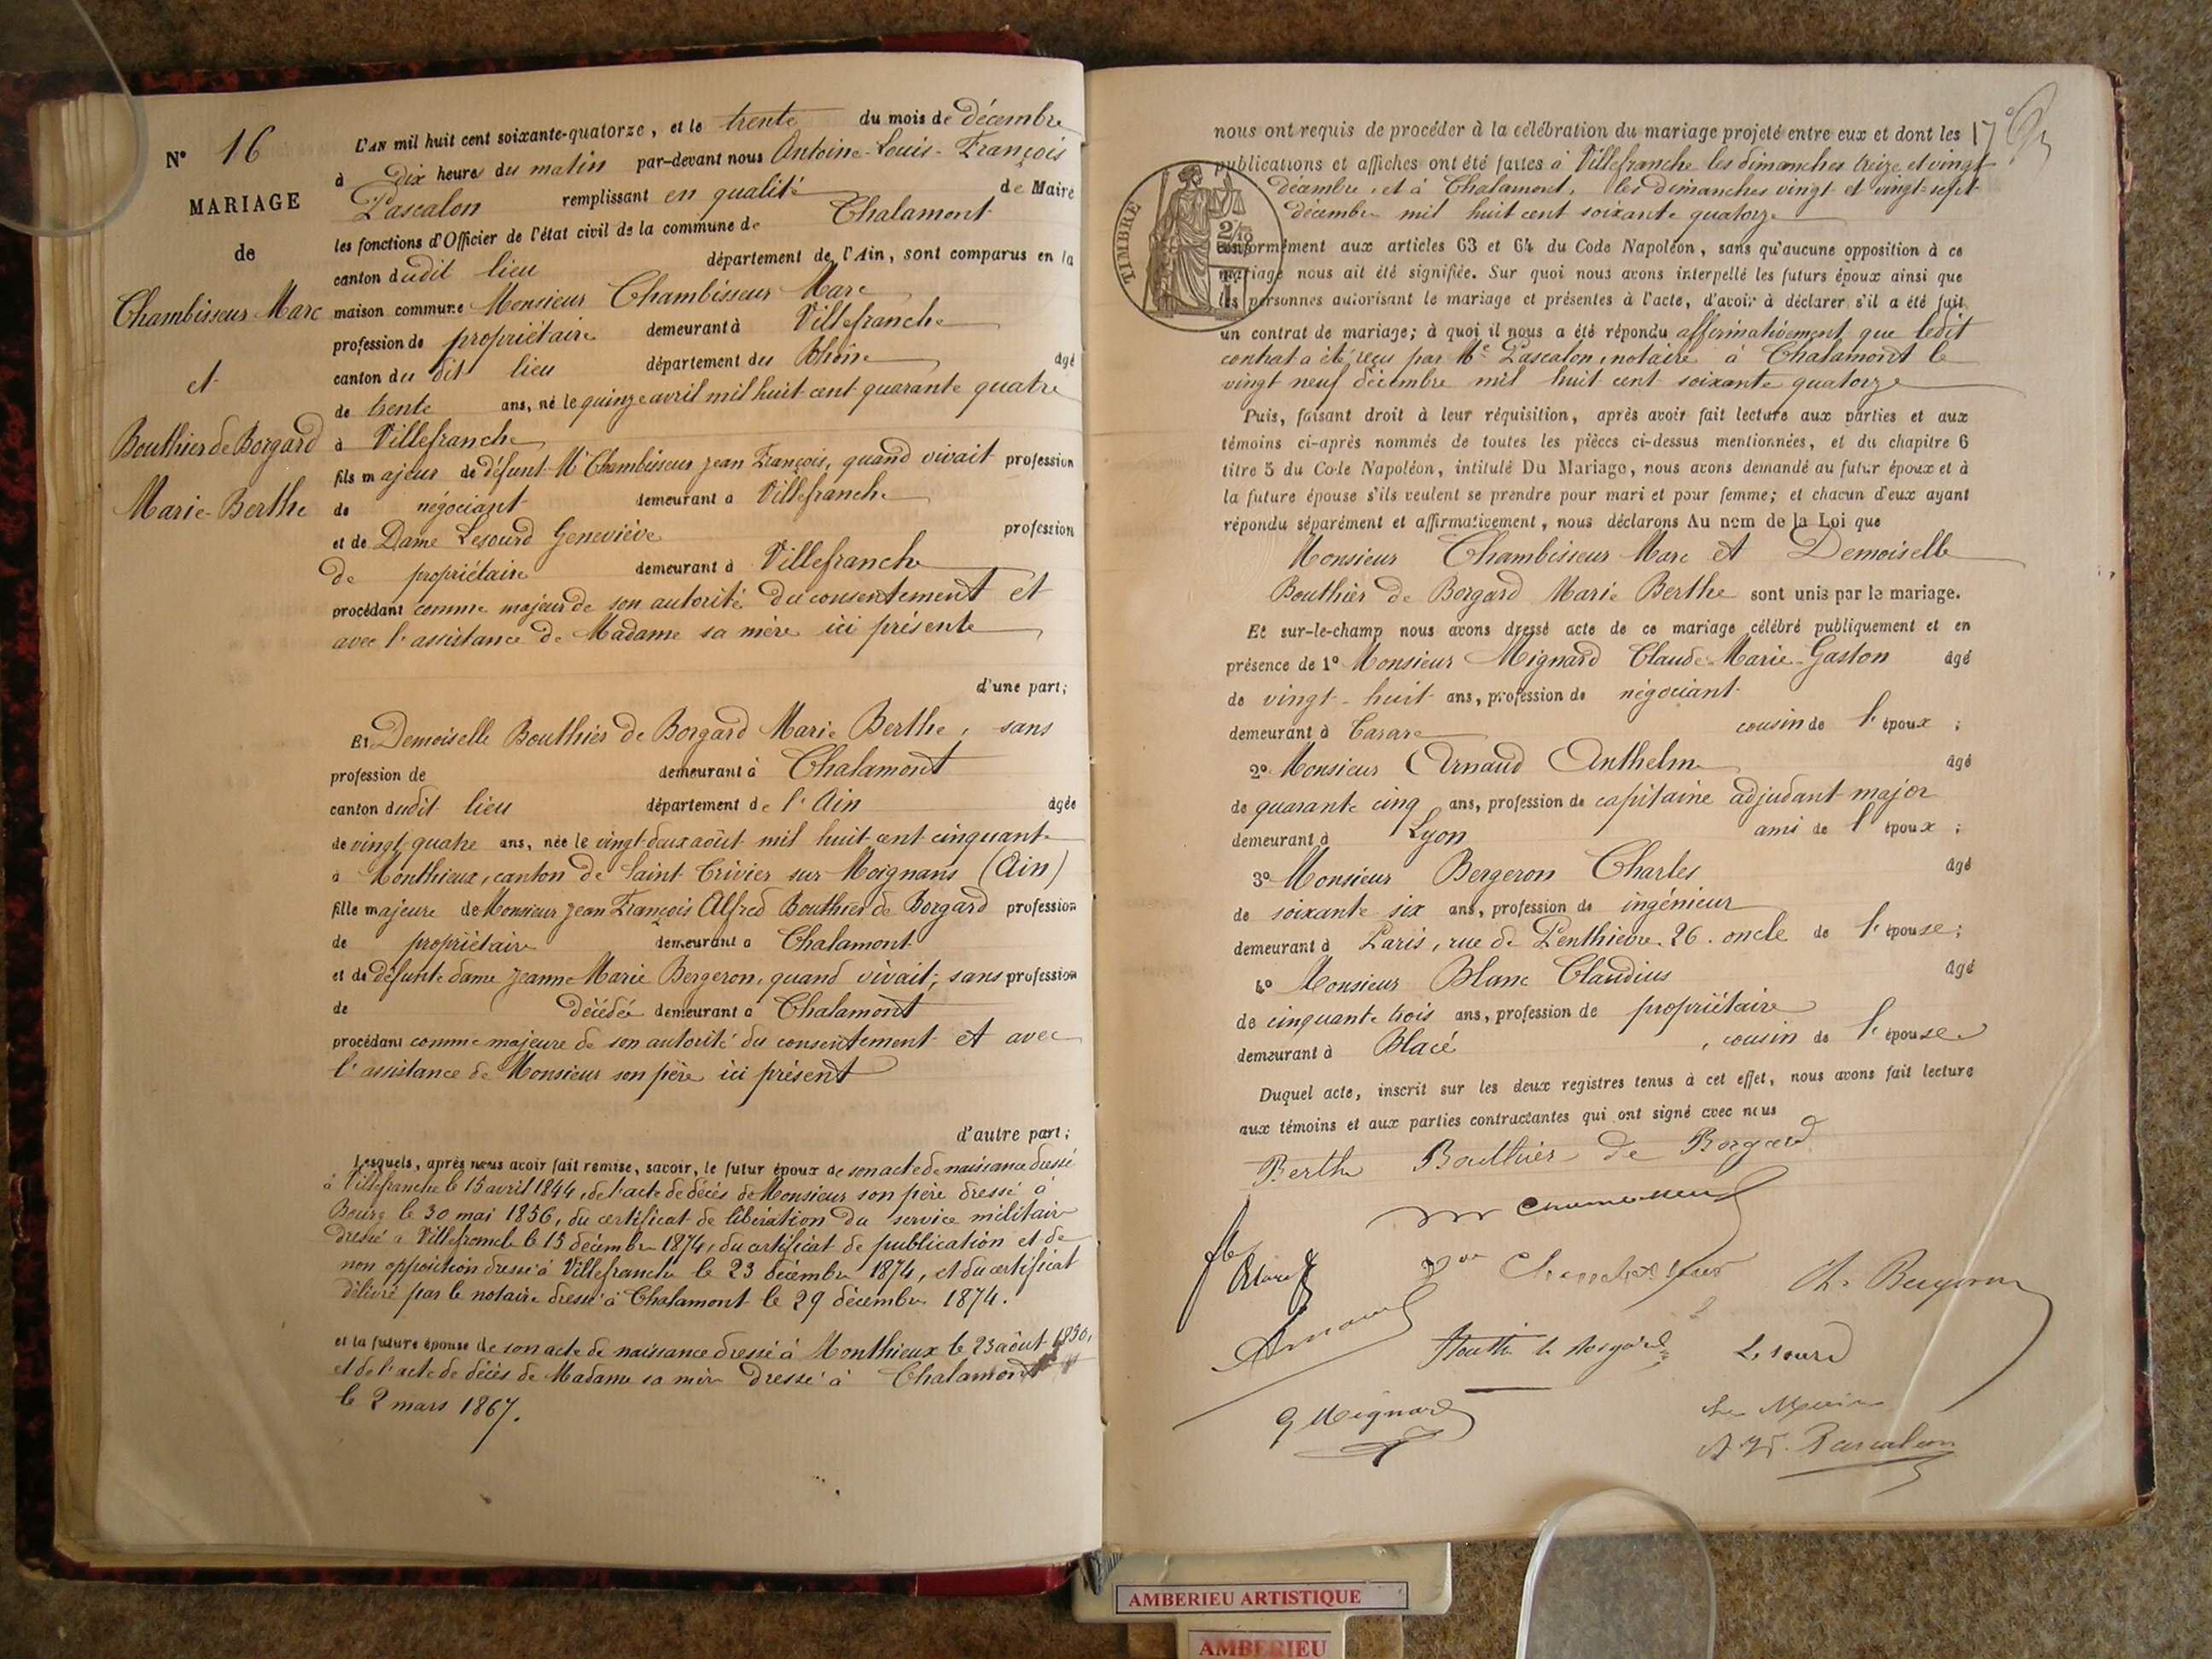 N° 16
MARIAGE
de
Chambisseur Marc
et
Bouthier de Borgard
Marie-Berthe
L'AN mil huit cent soixante-quatorze, et le trente du mois de décembre
à dix heures du matin par-devant nous Antoine-Louis-François
Pascalon remplissant en qualité de Maire
les fonctions d'Officier de l'état civil de la commune de Chalamont
canton dudit lieu département de l'Ain, sont comparus en la
maison commune Monsieur Chambisseur Marc
profession de propriétaire demeurant à Villefranche
canton du dit lieu département du Rhône âgé
de trente ans, né le quinze avril mil huit cent quarante quatre
à Villefranche
fils majeur de défunt Mr Chambisseur Jean François, quand vivait profession
de négociant demeurant à Villefranche
et de Dame Lesourd Geneviève profession
de propriétaire demeurant à Villefranche
procédant comme majeur de son autorité du consentement et
avec l'assistance de Madame sa mère ici présente
d'une part;
Et Demoiselle Bouthier de Borgard Marie Berthe, sans
profession de demeurant à Chalamont
canton dudit lieu département de l'Ain âgée
de vingt-quatre ans, née le vingt-deux août mil huit cent cinquante
à Monthieux, canton de Saint Trivier sur Moignans (Ain)
fille majeure de Monsieur Jean François Alfred Bouthier de Borgard profession
de propriétaire demeurant à Chalamont
et de défunte dame Jeanne Marie Bergeron, quand vivait, sans profession
de décédée demeurant à Chalamont
procédant comme majeure de son autorité du consentement et avec
l'assistance de Monsieur son père ici présent
d'autre part;
Lesquels, après nous avoir fait remise, savoir, le futur époux de son acte de naissance dressé
à Villefranche le 15 avril 1844, de l'acte de décès de Monsieur son père dressé à
Bourg le 30 mai 1856, du certificat de libération du service militaire
dressé à Villefranche le 15 décembre 1874, du certificat de publication et de
non opposition dressé à Villefranche le 23 décembre 1874, et du certificat
délivré par le notaire dressé à Chalamont le 29 décembre 1874.
et la future épouse de son acte de naissance dressé à Monthieux le 23 août 1850,
et de l'acte de décès de Madame sa mère dressé à Chalamont
le 2 mars 1867.
17e
nous ont requis de procéder à la célébration du mariage projeté entre eux et dont les
publications et affiches ont été faites à Villefranche les dimanches treize et vingt
décembre, et à Chalamont, les dimanches vingt et vingt-sept
décembre mil huit cent soixante quatorze
TIMBRE
2/10
conformément aux articles 63 et 64 du Code Napoléon, sans qu'aucune opposition à ce
mariage nous ait été signifiée. Sur quoi nous avons interpellé les futurs époux ainsi que
les personnes autorisant le mariage et présentes à l'acte, d'avoir à déclarer s'il a été fait
un contrat de mariage; à quoi il nous a été répondu affirmativement que ledit
contrat a été reçu par Me Pascalon, notaire à Chalamont le
vingt neuf décembre mil huit cent soixante quatorze
Puis, faisant droit à leur réquisition, après avoir fait lecture aux parties et aux
témoins ci-après nommés de toutes les pièces ci-dessus mentionnées, et du chapitre 6
titre 5 du Code Napoléon, intitulé Du Mariage, nous avons demandé au futur époux et à
la future épouse s'ils veulent se prendre pour mari et pour femme; et chacun d'eux ayant
répondu séparément et affirmativement, nous déclarons Au nom de la Loi que
Monsieur Chambisseur Marc et Demoiselle
Bouthier de Borgard Marie Berthe sont unis par le mariage.
Et sur-le-champ nous avons dressé acte de ce mariage célébré publiquement et en
présence de 1° Monsieur Mignard Claude-Marie-Gaston âgé
de vingt-huit ans, profession de négociant
demeurant à Tarare cousin de l'époux;
2° Monsieur Arnaud Anthelme âgé
de quarante cinq ans, profession de capitaine adjudant-major
demeurant à Lyon ami de l'époux;
3° Monsieur Bergeron Charles âgé
de soixante six ans, profession de ingénieur
demeurant à Paris, rue de Penthièvre, 26. oncle de l'épouse;
4° Monsieur Blanc Claudius âgé
de cinquante trois ans, profession de propriétaire
demeurant à Blacé, cousin de l'épouse
Duquel acte, inscrit sur les deux registres tenus à cet effet, nous avons fait lecture
aux témoins et aux parties contractantes qui ont signé avec nous
Berthe Bouthier de Borgard
Ch. Bergeron
Arnaud
Lesourd
G Mignard
Le Maire
Pascalon
AMBERIEU ARTISTIQUE
AMBERIEU